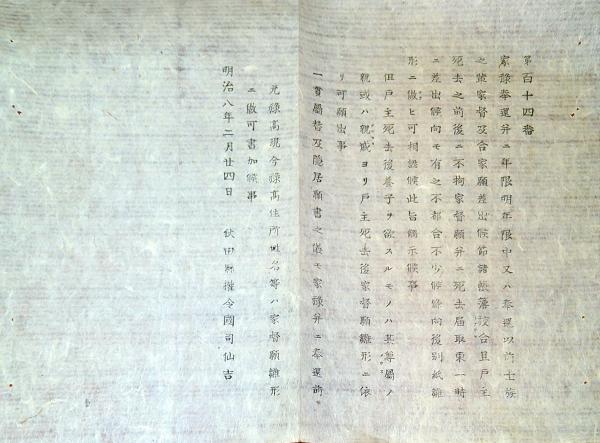 第百十四番
家祿奉還并ニ年限明年限中又ハ奉還以前士族
之輩家督及合家願差出候節諸帳簿
死去之前後ニ不拘家督願并ニ死去届取束一時
ニ差出候向モ有之不都合不少候條向後別紙雛
形ニ倣ヒ可相認候此旨諭示候事
但戸主死去後養子ヲ欲スルモノハ其尊属ノ
親或ハ親戚ヨリ戸主死去後家督願雛形ニ依
リ可願出事
一貫属督及隠居願書之儀モ家祿并ニ奉還前
元祿高現今祿高住所姓名等ハ家督願雛形
ニ倣可書加候事
明治八年二月廿四日
秋田縣權令國司仙吉